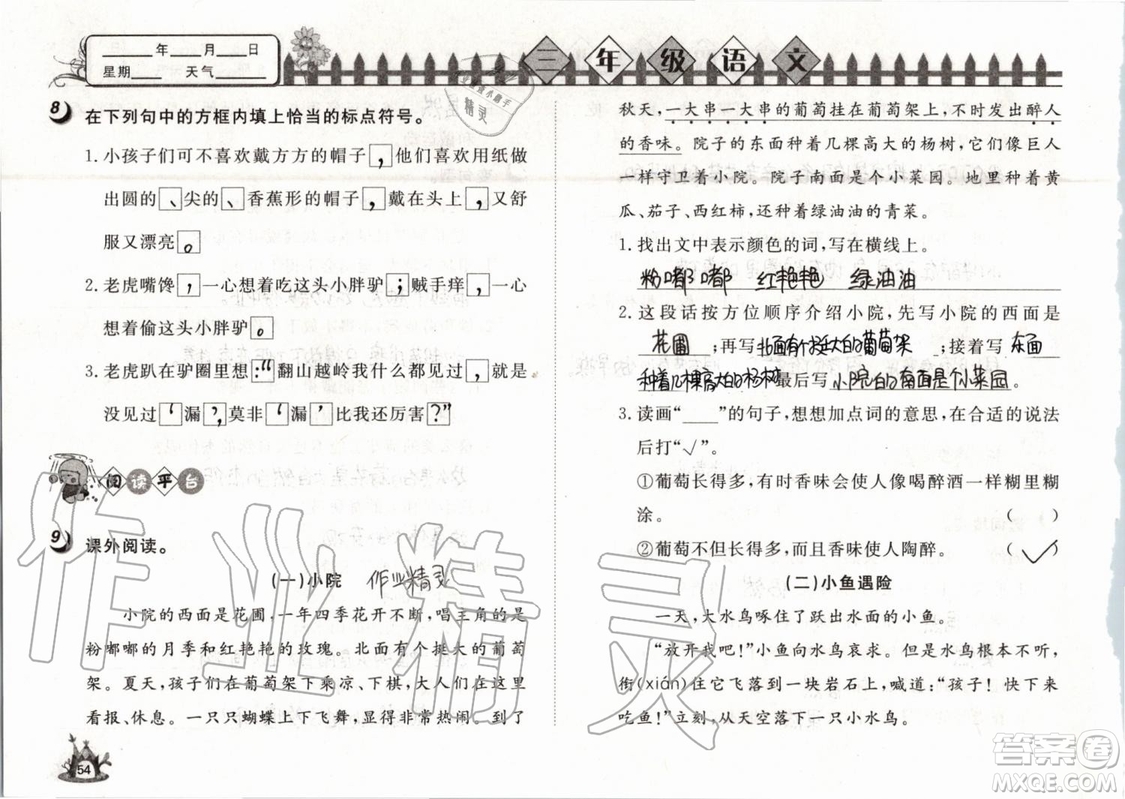 ____年__月__日
星期____ 天气____
三年级语文
8 在下列句中的方框内填上恰当的标点符号。
1. 小孩子们可不喜欢戴方方的帽子，他们喜欢用纸做
出圆的、尖的、香蕉形的帽子，戴在头上，又舒
服又漂亮。
2. 老虎嘴馋，一心想着吃这头小胖驴；贼手痒，一心
想着偷这头小胖驴。
3. 老虎趴在驴圈里想：“翻山越岭我什么都见过，就是
没见过‘漏’，莫非‘漏’比我还厉害？”
阅读平台
9 课外阅读。
(一)小院 作业精灵
小院的西面是花圃，一年四季花开不断，唱主角的是
粉嘟嘟的月季和红艳艳的玫瑰。北面有个挺大的葡萄
架。夏天，孩子们在葡萄架下乘凉、下棋，大人们在这里
看报、休息。一只只蝴蝶上下飞舞，显得非常热闹。到了
54
秋天，一大串一大串的葡萄挂在葡萄架上，不时发出醉人
的香味。院子的东面种着几棵高大的杨树，它们像巨人
一样守卫着小院。院子南面是个小菜园。地里种着黄
瓜、茄子、西红柿，还种着绿油油的青菜。
1. 找出文中表示颜色的词，写在横线上。
粉嘟嘟 红艳艳 绿油油
2. 这段话按方位顺序介绍小院，先写小院的西面是
花圃；再写北面有个挺大的葡萄架；接着写东面
种着几棵高大的杨树最后写小院的南面是个小菜园。
3. 读画“____”的句子，想想加点词的意思，在合适的说法
后打“√”。
①葡萄长得多，有时香味会使人像喝醉酒一样糊里糊
涂。 ( )
②葡萄不但长得多，而且香味使人陶醉。 (√)
(二)小鱼遇险
一天，大水鸟啄住了跃出水面的小鱼。
“放开我吧！”小鱼向水鸟哀求。但是水鸟根本不听，
衔(xián)住它飞落到一块岩石上，喊道：“孩子！快下来
吃鱼！”立刻，从天空落下一只小水鸟。
作业精灵
答案圈
MXQE.COM